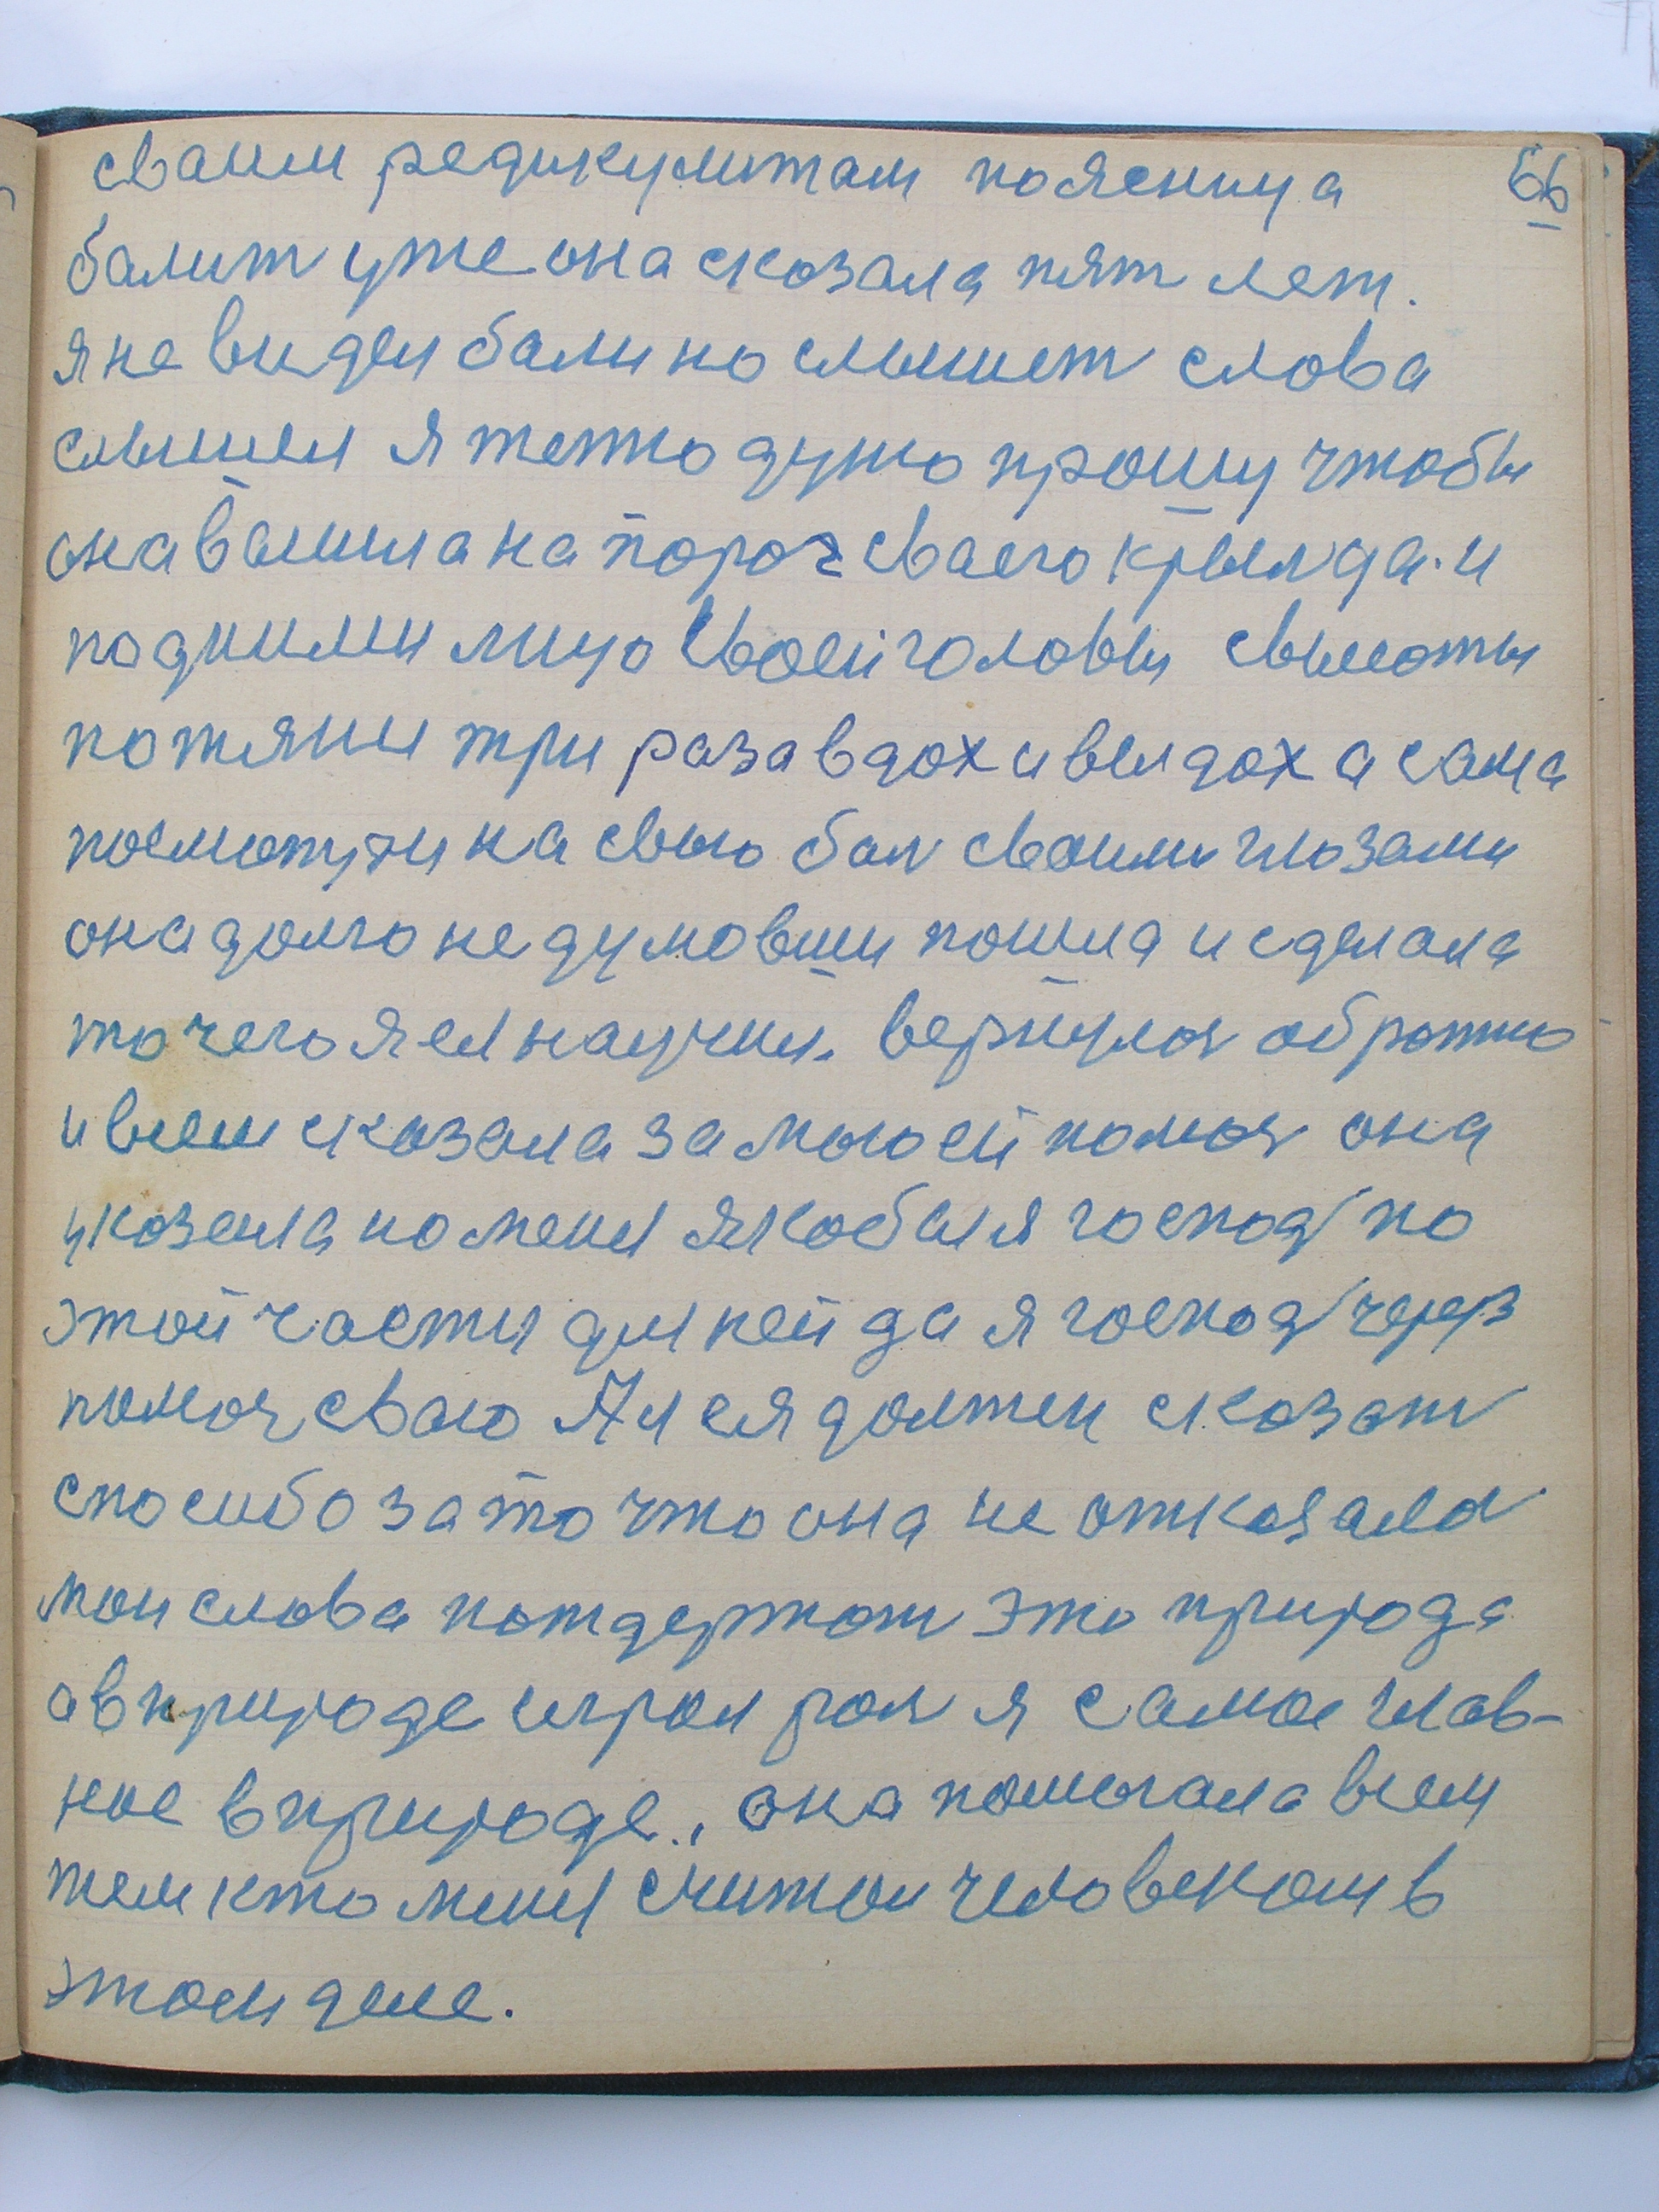 сваим редикулитам поясница 66
балит уже она сказала пят лет.
я не видел бали но слышет слова
слышел я тетю дуню прошу чтобы
она вашила на порог сваего крылца. и
подними лицо своей головы свысоты
потяни три раза вдох и выдох а сама
посмотри на свою бал своими глозами
она долго не думовши пошла и сделала
то чего я ея научил. вернулас обратно
и всем сказала за мою ей помоч она
указала на меня якобы я господ по
этой части для ней да я господ через
помоч сваю А я ея должен сказат
спосибо за то что она не отказалас
мои слова потдержат это природа
а в природе играл рол я самое глав-
ное в природе., она помогала всем
тем кто меня считал человеком в
этом деле.